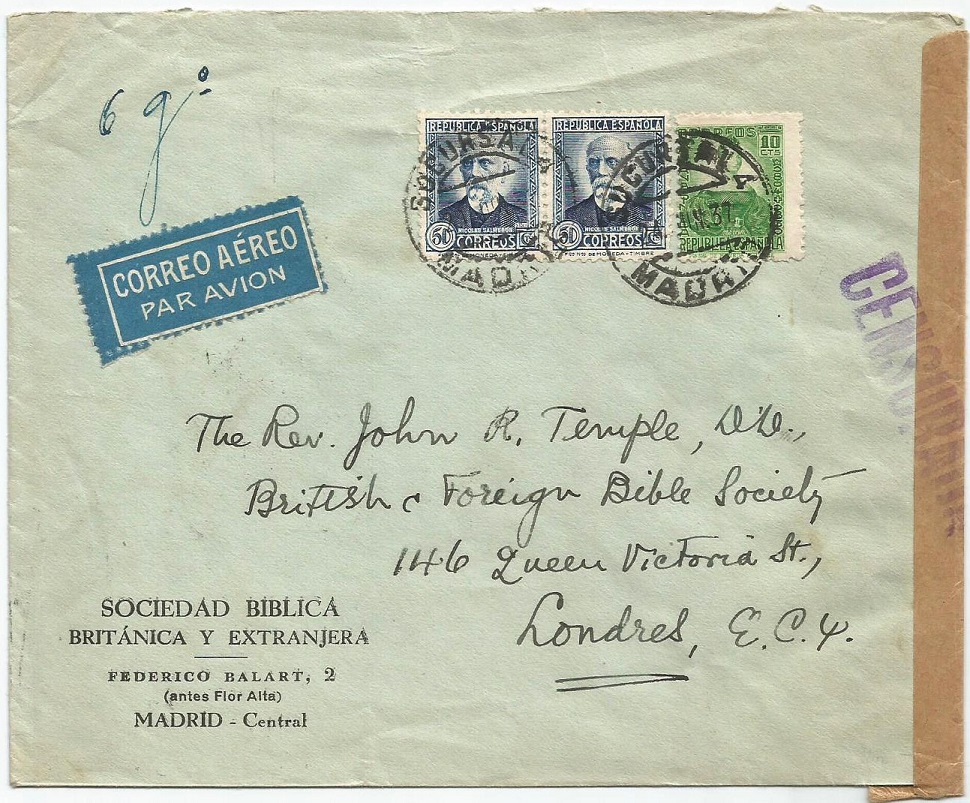 6 gº
REPÚBLICA ESPAÑOLA
NICOLAS SALMERON
50 CORREOS Cs
REPÚBLICA ESPAÑOLA
NICOLAS SALMERON
50 CORREOS Cs
10
CTS
REPUBLICA ESPAÑOLA
SUCURSAL 4
MADRID
SUCURSAL 4
37
MADRID
CORREO AÉREO
PAR AVION
CENSURA
The Rev. John R. Temple, D.D.,
British & Foreign Bible Society
146 Queen Victoria St.,
Londres, E.C.4.
SOCIEDAD BIBLICA
BRITÁNICA Y EXTRANJERA
FEDERICO BALART, 2
(antes Flor Alta)
MADRID - Central